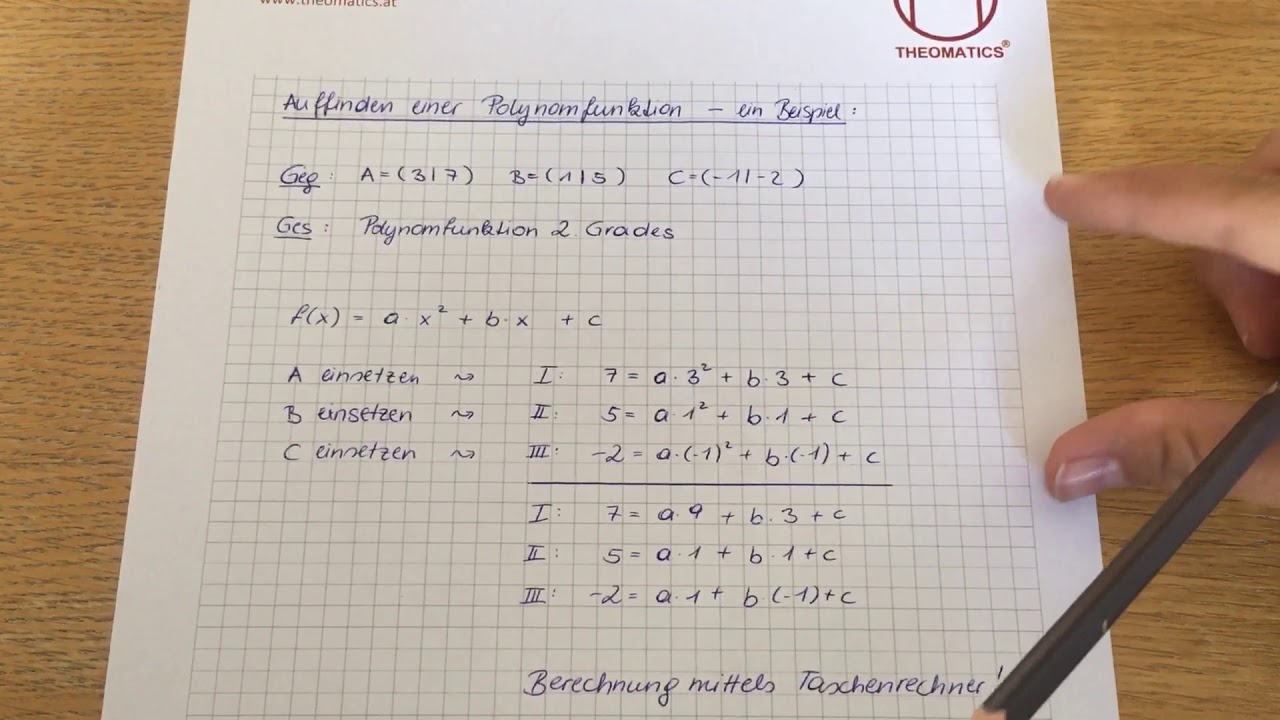 www.theomatics.at
THEOMATICS®
Auffinden einer Polynomfunktion – ein Beispiel:
Geg: A=(3|7) B=(1|5) C=(-1|-2)
Ges: Polynomfunktion 2. Grades
f(x) = a·x² + b·x + c
A einsetzen ⇝ I: 7 = a·3² + b·3 + c
B einsetzen ⇝ II: 5 = a·1² + b·1 + c
C einsetzen ⇝ III: -2 = a·(-1)² + b·(-1) + c
I: 7 = a·9 + b·3 + c
II: 5 = a·1 + b·1 + c
III: -2 = a·1 + b·(-1) + c
Berechnung mittels Taschenrechner!